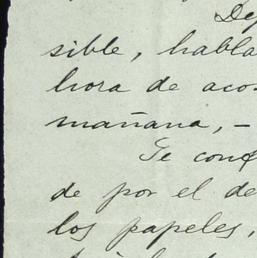 De
sible, habla
hora de acos
mañana, –
Te conf
de por el de
los papeles,